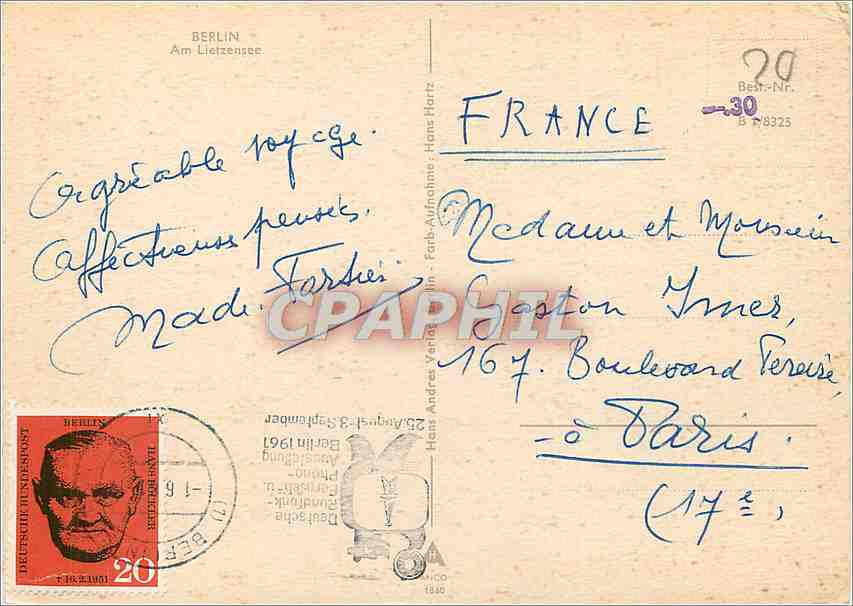 BERLIN
Am Lietzensee
Agréable voyage.
Affectueuses pensées.
Made.
Hans Andres Verlag Berlin - Farb-Aufnahme: Hans Hartz
CPAPHIL
20
Best.-Nr.
-.30
B 1/8325
FRANCE
Madame et Monsieur
Gaston Imer,
167. Boulevard Pereire,
- à Paris.
(17e,
25. August - 3. September
Berlin 1961
Ausstellung
Phono-
Fernseh- u.
Rundfunk-
Deutsche
(1) BERLIN
-1.6
IX
DEUTSCHE BUNDESPOST
BERLIN
HANS BÖCKLER
+ 16.2.1951
20
1860